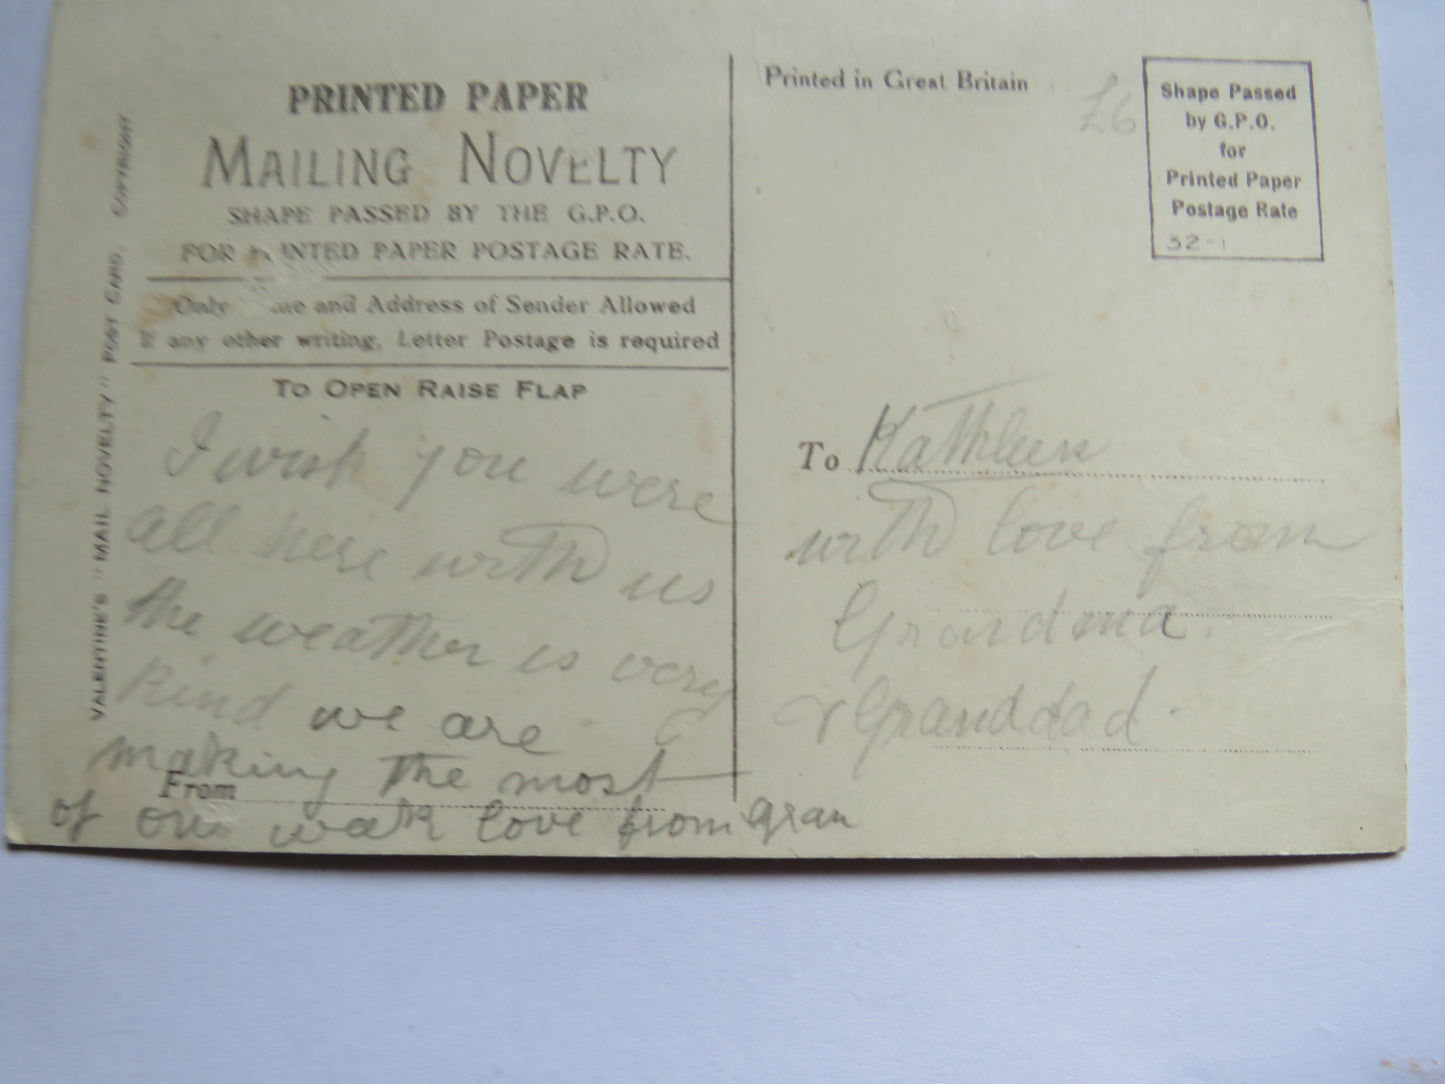 PRINTED PAPER
MAILING NOVELTY
SHAPE PASSED BY THE G.P.O.
FOR PRINTED PAPER POSTAGE RATE.
Only and Address of Sender Allowed
If any other writing, Letter Postage is required
TO OPEN RAISE FLAP
I wish you were
all here with us
the weather is very
Kind we are
making the most
From
of our weak love from gran
VALENTINE'S "MAIL NOVELTY" POST CARD. COPYRIGHT
Printed in Great Britain
£6
Shape Passed
by G.P.O.
for
Printed Paper
Postage Rate
32-1
To Kathleen
with love from
Grandma.
& Granddad.